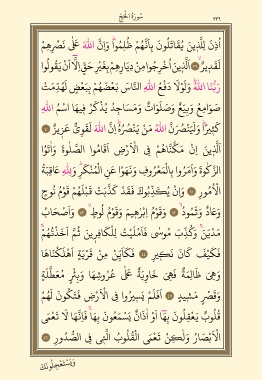 سُورَةُ الْحَجِّ ٣٣٦
اُذِنَ لِلَّذِينَ يُقَاتَلُونَ بِاَنَّهُمْ ظُلِمُوا وَاِنَّ اللهَ عَلٰى نَصْرِهِمْ
لَقَدِيرٌ ۙ اَلَّذِينَ اُخْرِجُوا مِنْ دِيَارِهِمْ بِغَيْرِ حَقٍّ اِلَّٓا اَنْ يَقُولُوا
رَبُّنَا اللهُ وَلَوْلَا دَفْعُ اللهِ النَّاسَ بَعْضَهُمْ بِبَعْضٍ لَهُدِّمَتْ
صَوَامِعُ وَبِيَعٌ وَصَلَوَاتٌ وَمَسَاجِدُ يُذْكَرُ فِيهَا اسْمُ اللهِ
كَثِيرًا وَلَيَنْصُرَنَّ اللهُ مَنْ يَنْصُرُهُ اِنَّ اللهَ لَقَوِىٌّ عَزِيزٌ
اَلَّذِينَ اِنْ مَكَّنَّاهُمْ فِى الْاَرْضِ اَقَامُوا الصَّلٰوةَ وَاٰتَوُا
الزَّكٰوةَ وَاَمَرُوا بِالْمَعْرُوفِ وَنَهَوْا عَنِ الْمُنْكَرِ وَلِلّٰهِ عَاقِبَةُ
الْاُمُورِ وَاِنْ يُكَذِّبُوكَ فَقَدْ كَذَّبَتْ قَبْلَهُمْ قَوْمُ نُوحٍ
وَعَادٌ وَثَمُودُ وَقَوْمُ اِبْرٰهِيمَ وَقَوْمُ لُوطٍ وَاَصْحَابُ
مَدْيَنَ وَكُذِّبَ مُوسٰى فَاَمْلَيْتُ لِلْكَافِرِينَ ثُمَّ اَخَذْتُهُمْ
فَكَيْفَ كَانَ نَكِيرِ فَكَاَيِّنْ مِنْ قَرْيَةٍ اَهْلَكْنَاهَا
وَهِىَ ظَالِمَةٌ فَهِىَ خَاوِيَةٌ عَلٰى عُرُوشِهَا وَبِئْرٍ مُعَطَّلَةٍ
وَقَصْرٍ مَشِيدٍ اَفَلَمْ يَسِيرُوا فِى الْاَرْضِ فَتَكُونَ لَهُمْ
قُلُوبٌ يَعْقِلُونَ بِهَا اَوْ اٰذَانٌ يَسْمَعُونَ بِهَا فَاِنَّهَا لَا تَعْمَى
الْاَبْصَارُ وَلٰكِنْ تَعْمَى الْقُلُوبُ الَّتِى فِى الصُّدُورِ
وَيَسْتَعْجِلُونَكَ